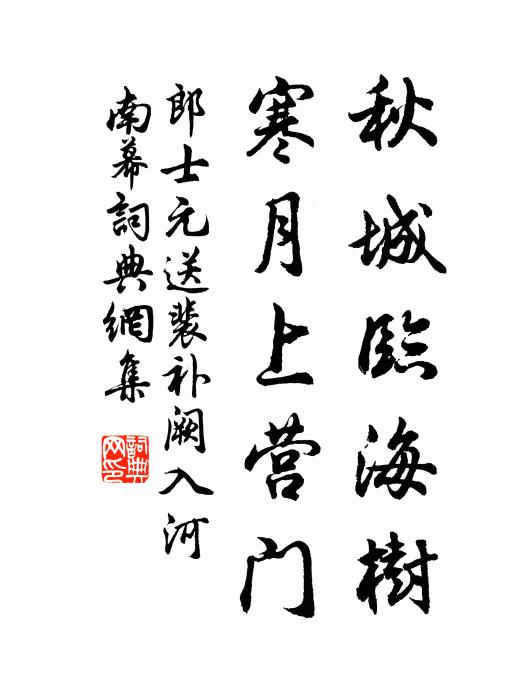 秋城臨海樹
寒月上营门
郎士元送裴补阙入河
南幕詞典網集
詞典
网印